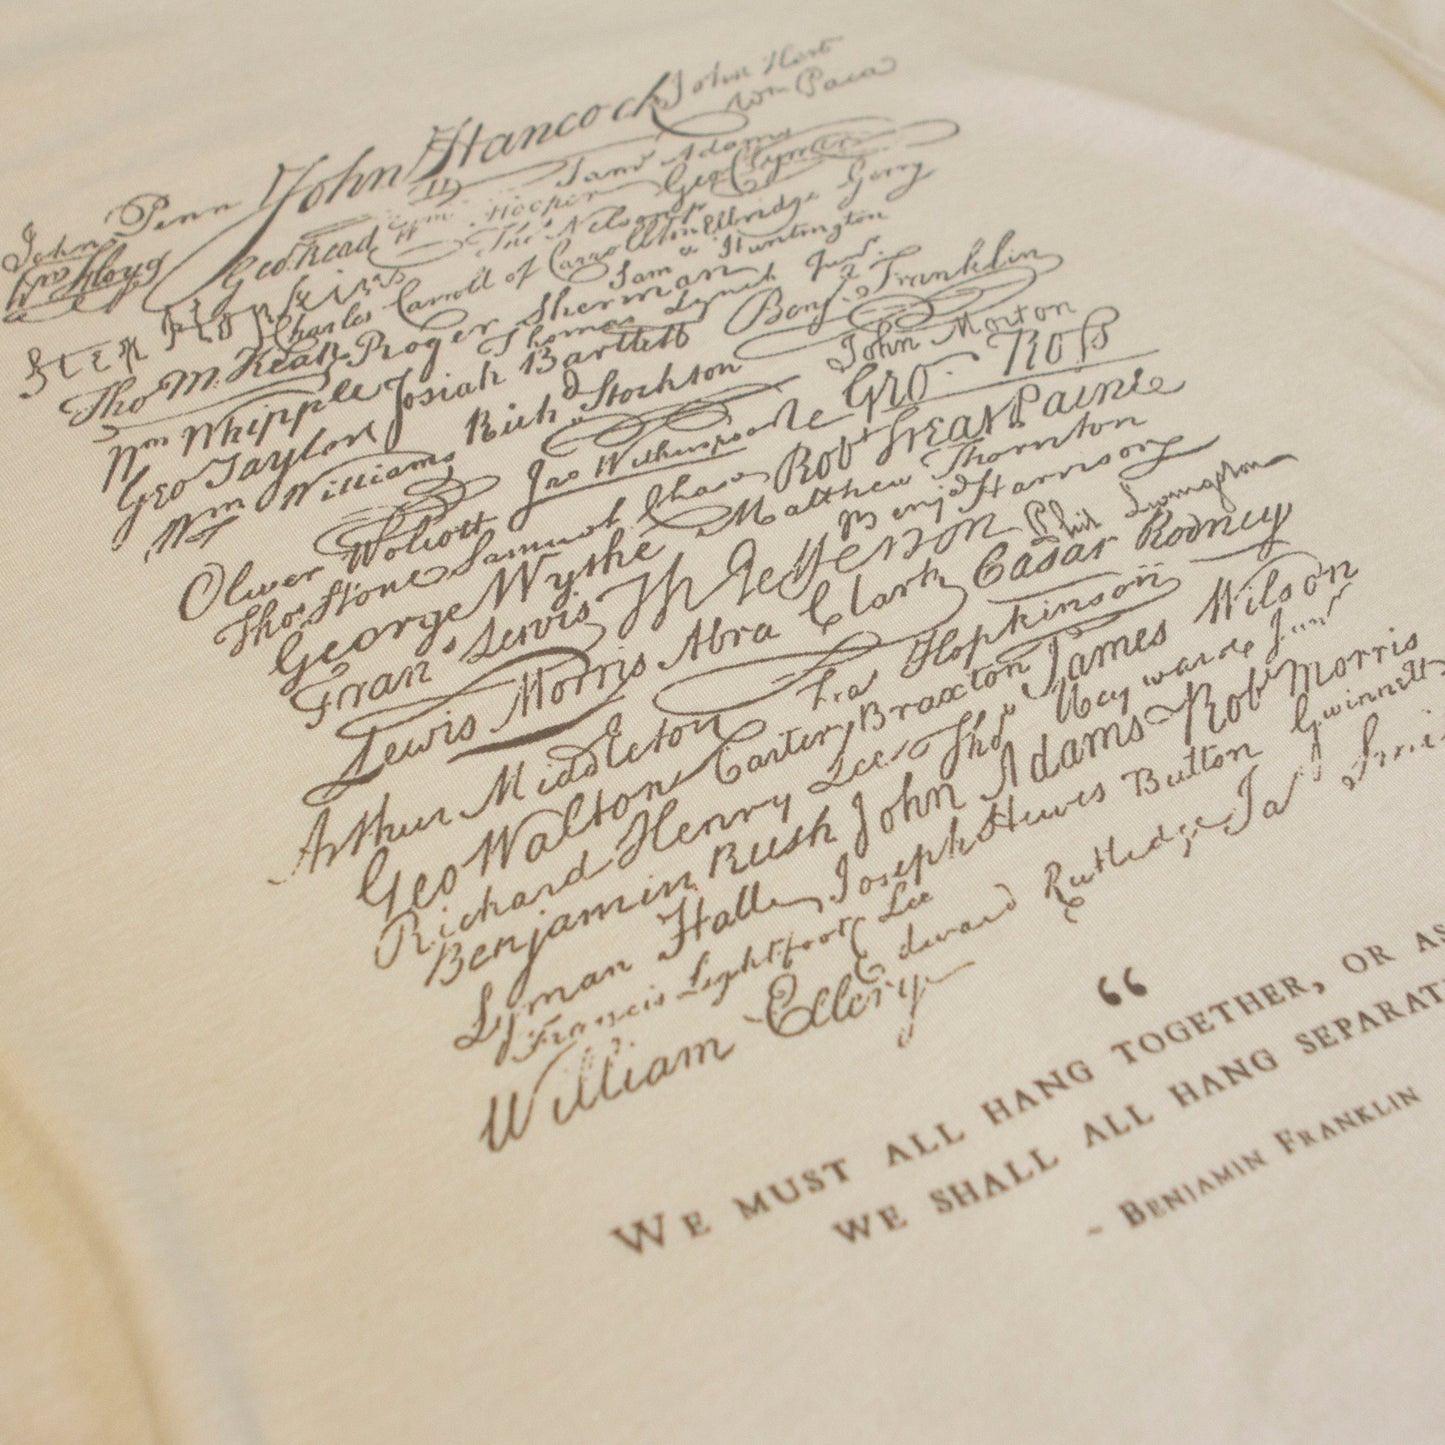 John Penn John Hancock John Hart
Wm Paca
Wm Floyd Geo Read Wm Hooper Saml Adams Geo Clymer
Step Hopkins Thos Nelson jr
Charles Carroll of Carrollton Elbridge Gerry
Tho M. Kean Roger Sherman Sam el Huntington
Wm Whipple Josiah Bartlett Thomas Lynch Junr. Benj. Franklin
Geo Taylor Richd Stockton John Morton
Wm Williams Jno Witherspoon Geo. Ross
Oliver Wolcott Samuel Chase Robt Treat Paine
Thos Stone Matthew Thornton
George Wythe Benj Harrison
Frans Lewis Th Jefferson Phil Livingston
Lewis Morris Abra Clark Cæsar Rodney
Arthur Middleton Fras Hopkinson
Geo Walton Carter Braxton James Wilson
Richard Henry Lee Thos Heyward Junr
Benjamin Rush John Adams Robt Morris
Lyman Hall Joseph Hewes Button Gwinnett
Francis Lightfoot Lee
William Ellery Edward Rutledge Jas
“
We must all hang together, or as
we shall all hang
~ Benjamin Franklin